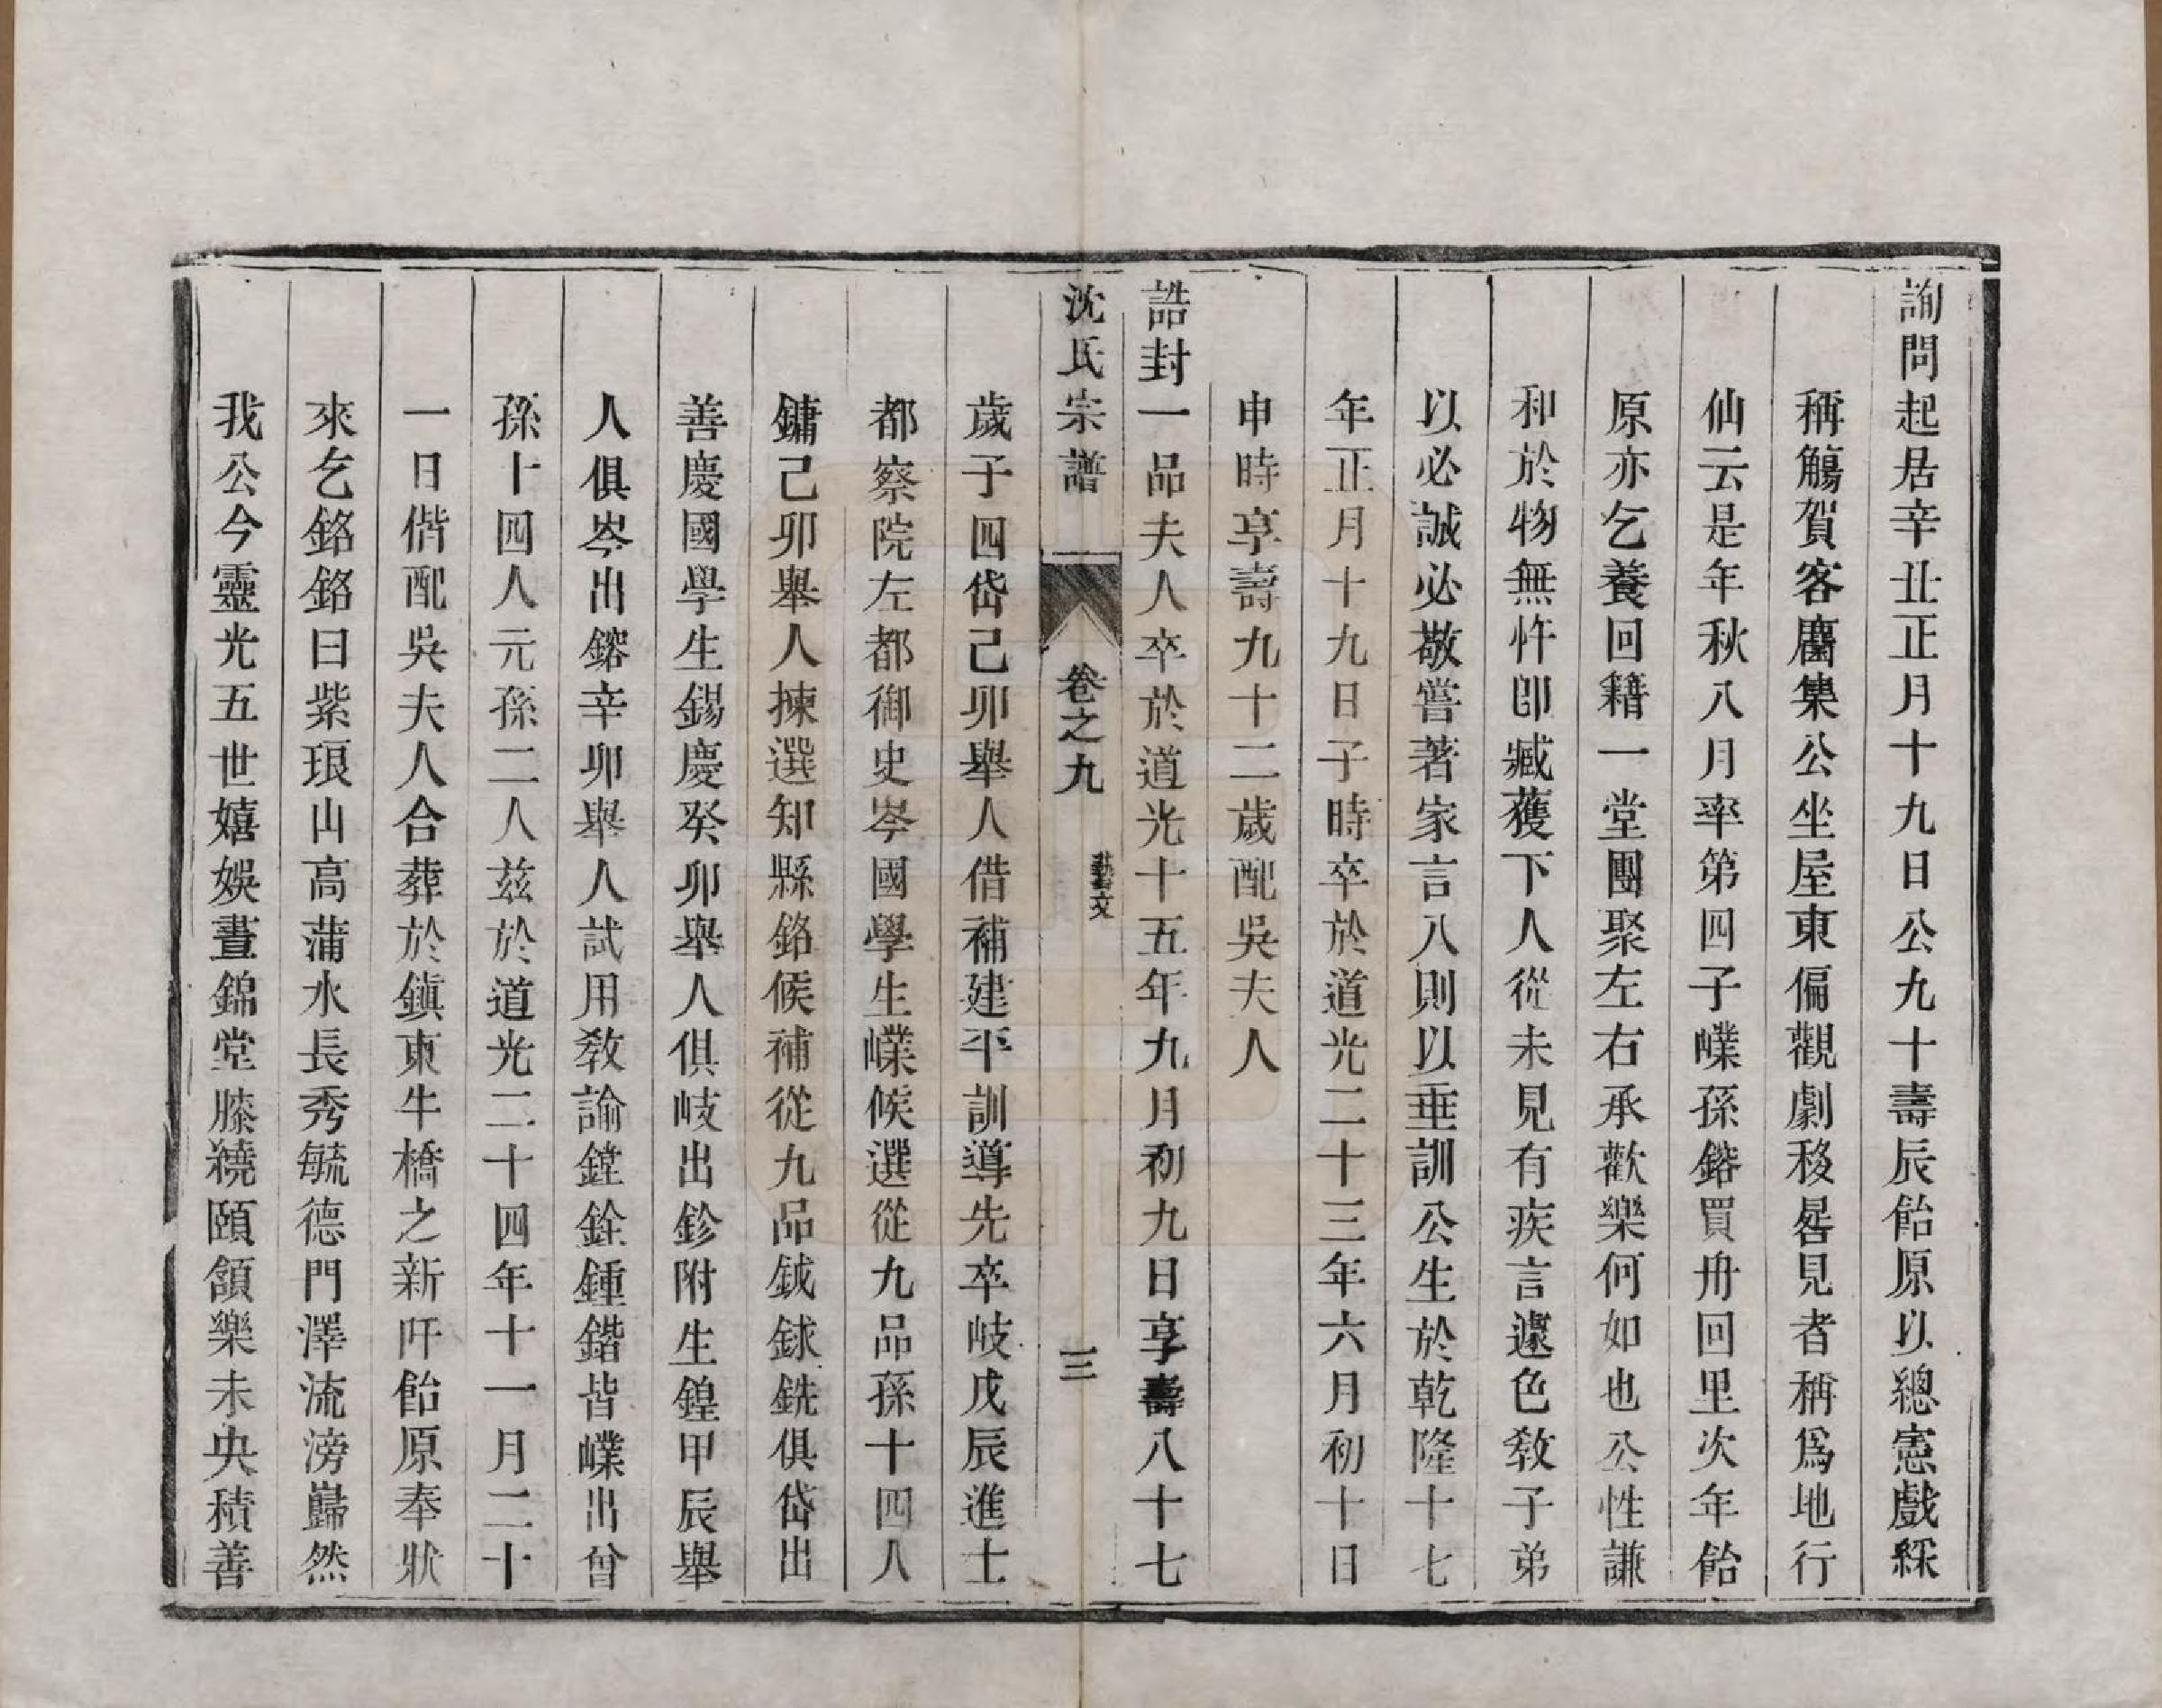 詢問起居辛丑正月十九日公九十壽辰飴原以總憲戲綵
稱觴賀客麕集公坐屋東偏觀劇移晷見者稱爲地行
仙云是年秋八月率第四子㠎孫鎔買舟回里次年飴
原亦乞養回籍一堂團聚左右承歡樂何如也公性謙
和於物無忤卽臧獲下人從未見有疾言遽色敎子弟
以必誠必敬嘗著家言八則以垂訓公生於乾隆十七
年正月十九日子時卒於道光二十三年六月初十日
申時享壽九十二歲配吳夫人
誥封一品夫人卒於道光十五年九月初九日享壽八十七
沈氏宗譜 卷之九 藝文 三
歲子四岱己卯舉人借補建平訓導先卒岐戊辰進士
都察院左都御史岑國學生㠎候選從九品孫十四人
鏞己卯舉人揀選知縣銘候補從九品鉞銶銑俱岱出
善慶國學生錫慶癸卯舉人俱岐出鉁附生鍠甲辰舉
人俱岑出鎔辛卯舉人試用敎諭鏜銓鍾鍇皆㠎出曾
孫十四人元孫二人兹於道光二十四年十一月二十
一日偕配吳夫人合葬於鎭東牛橋之新阡飴原奉狀
來乞銘銘曰紫琅山高蒲水長秀毓德門澤流滂巋然
我公今靈光五世嬉娛晝錦堂膝繞頤頷樂未央積善